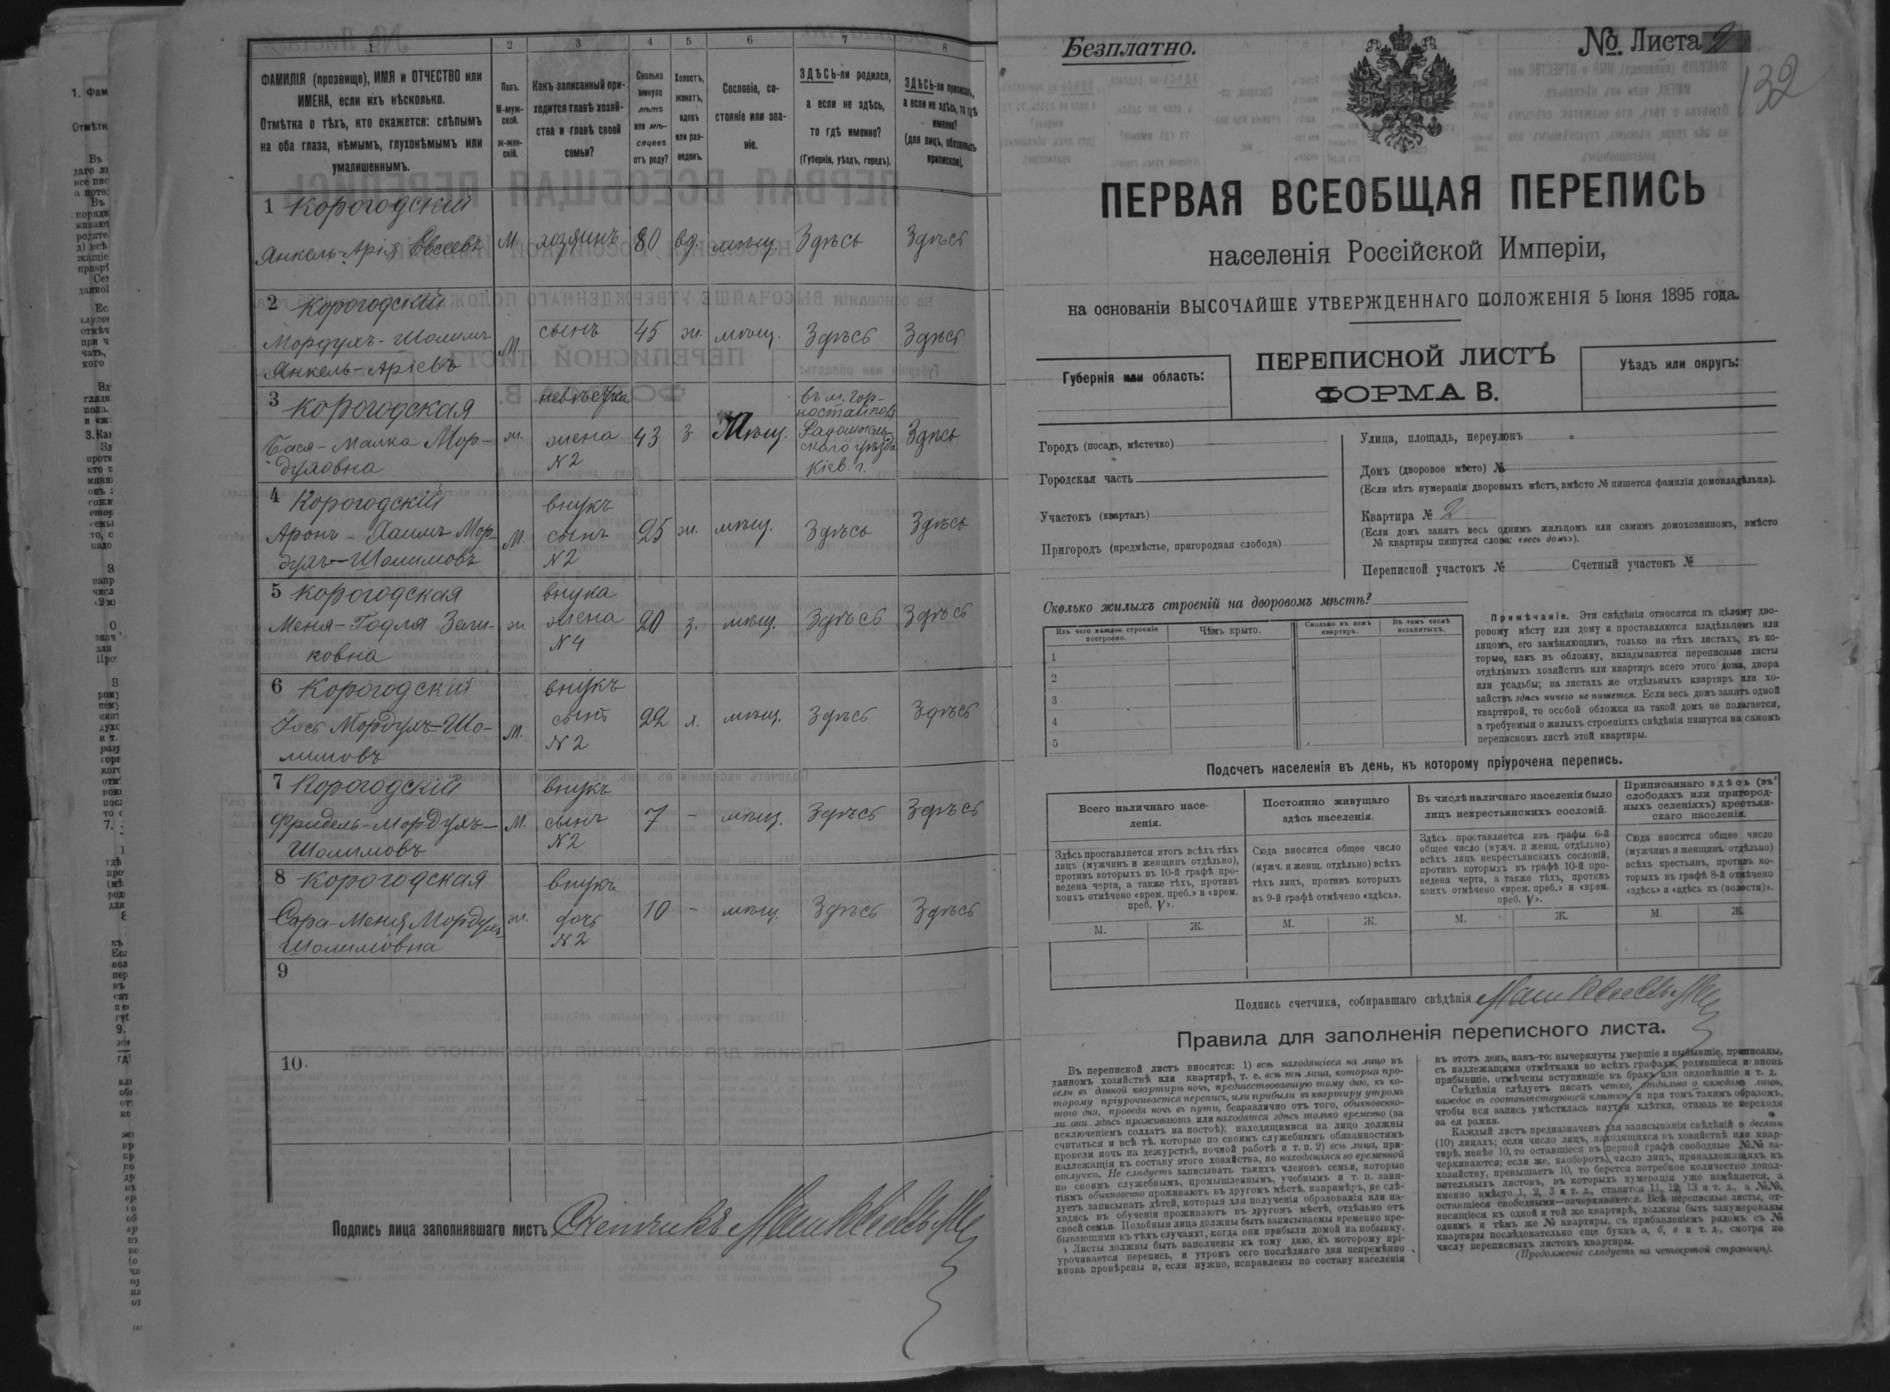 1
2
3
4
5
6
7
8
ФАМИЛІЯ (прозвище), ИМЯ и ОТЧЕСТВО или
ИМЕНА, если ихъ нѣсколько.
Отмѣтка о тѣхъ, кто окажется: слѣпымъ
на оба глаза, нѣмымъ, глухонѣмымъ или
умалишеннымъ.
Полъ.
М-муж-
ской.
Ж-жен-
скій.
Какъ записанный при-
ходится главѣ хозяй-
ства и главѣ своей
семьи?
Сколько
минуло
лѣтъ
или мѣ-
сяцевъ
отъ роду?
Холостъ,
женатъ,
вдовъ
или раз-
веденъ.
Сословіе, со-
стояніе или зва-
ніе.
ЗДѢСЬ-ли родился,
а если не здѣсь,
то гдѣ именно?
(Губернія, уѣздъ, городъ).
ЗДѢСЬ-ли приписанъ,
а если не здѣсь, то гдѣ
именно?
(для лицъ, обязанныхъ
припиской).
1 Корогодскій
Янкель-Арія Евсеевъ М. хозяинъ 80 вд. мѣщ. Здѣсь Здѣсь
2 Корогодскій
Мордухъ-Шолимъ М. сынъ 45 ж. мѣщ. Здѣсь Здѣсь
Янкель-Аріевъ
3 Корогодская невѣстка въ м. Гор-
ностайполь
Бася-Малка Мор- ж. жена 43 з. Мѣщ. Радомысль- Здѣсь
ского уѣзда
духовна №2 Кіев. г.
4 Корогодскій внукъ
Аронъ-Хаимъ Мор- М. сынъ 25 ж. мѣщ. Здѣсь Здѣсь
духъ-Шолимовъ №2
5 Корогодская внука
Меня-Годля Зели- ж. жена 20 з. мѣщ. Здѣсь Здѣсь
ковна №4
6 Корогодскій внукъ
Іосъ Мордухъ-Шо- М. сынъ 22 х. мѣщ. Здѣсь Здѣсь
лимовъ №2
7 Корогодскій внукъ
Фридель-Мордухъ- М. сынъ 7 - мѣщ. Здѣсь Здѣсь
Шолимовъ №2
8 Корогодская внука
Сара-Меня Мордухъ- ж. дочь 10 - мѣщ. Здѣсь Здѣсь
Шолимовна №2
9
10
Подпись лица заполнявшаго листъ Счетчикъ
Безплатно.
№ Листа 2
132
ПЕРВАЯ ВСЕОБЩАЯ ПЕРЕПИСЬ
населенія Россійской Имперіи,
на основаніи ВЫСОЧАЙШЕ УТВЕРЖДЕННАГО ПОЛОЖЕНІЯ 5 Іюня 1895 года.
Губернія или область:
ПЕРЕПИСНОЙ ЛИСТЪ
ФОРМА В.
Уѣздъ или округъ:
Городъ (посадъ, мѣстечко)
Городская часть
Участокъ (кварталъ)
Пригородъ (предмѣстье, пригородная слобода)
Улица, площадь, переулокъ
Домъ (дворовое мѣсто) №
(Если нѣтъ нумераціи дворовыхъ мѣстъ, вмѣсто № пишется фамилія домовладѣльца).
Квартира № 2
(Если домъ занятъ весь однимъ жильцомъ или самимъ домохозяиномъ, вмѣсто
№ квартиры пишутся слова: «весь домъ»).
Переписной участокъ № Счетный участокъ №
Сколько жилыхъ строеній на дворовомъ мѣстѣ?
Изъ чего каждое строеніе
построено.
Чѣмъ крыто.
Сколько въ немъ
квартиръ.
Въ томъ числѣ
незанятыхъ.
1
2
3
4
5
Примѣчаніе. Эти свѣдѣнія относятся къ цѣлому дво-
ровому мѣсту или дому и проставляются владѣльцемъ или
лицомъ, его замѣняющимъ, только на тѣхъ листахъ, въ ко-
торые, какъ въ обложку, вкладываются переписные листы
отдѣльныхъ хозяйствъ или квартиръ всего этого дома, двора
или усадьбы; на листахъ же отдѣльныхъ квартиръ или хо-
зяйствъ здѣсь ничего не пишется. Если весь домъ занятъ одной
квартирой, то особой обложки на такой домъ не полагается,
а требуемыя о жилыхъ строеніяхъ свѣдѣнія пишутся на самомъ
переписномъ листѣ этой квартиры.
Подсчетъ населенія въ день, къ которому пріурочена перепись.
Всего наличнаго насе-
ленія.
Здѣсь проставляется итогъ всѣхъ тѣхъ
лицъ (мужчинъ и женщинъ отдѣльно),
противъ которыхъ въ 10-й графѣ про-
ведена черта, а также тѣхъ, противъ
коихъ отмѣчено «врем. преб.» и «врем.
преб. V».
Постоянно живущаго
здѣсь населенія.
Сюда вносится общее число
(мужч. и женщ. отдѣльно) всѣхъ
тѣхъ лицъ, противъ которыхъ
въ 9-й графѣ отмѣчено «здѣсь».
Въ числѣ наличнаго населенія было
лицъ некрестьянскихъ сословій.
Здѣсь проставляется изъ графы 6-й
общее число (мужч. и женщ. отдѣльно)
всѣхъ лицъ некрестьянскихъ сословій,
противъ которыхъ въ графѣ 10-й про-
ведена черта, а также тѣхъ, противъ
коихъ отмѣчено «врем. преб.» и «врем.
преб. V».
Приписаннаго здѣсь (въ
слободахъ или пригород-
ныхъ селеніяхъ) крестьян-
скаго населенія.
Сюда вносится общее число
(мужчинъ и женщинъ отдѣльно)
всѣхъ крестьянъ, противъ ко-
торыхъ въ графѣ 8-й отмѣчено
«здѣсь» и «здѣсь къ (волости)».
М. Ж. М. Ж. М. Ж. М. Ж.
Подпись счетчика, собиравшаго свѣдѣнія
Правила для заполненія переписного листа.
Въ переписной листъ вносятся: 1) всѣ находящіеся на лицо въ
данномъ хозяйствѣ или квартирѣ, т. е. всѣ тѣ лица, которыя про-
вели въ данной квартирѣ ночь, предшествовавшую тому дню, къ ко-
торому пріурочивается перепись, или прибыли въ квартиру утромъ
того дня, проведя ночь въ пути, безразлично отъ того, обыкновенно-
ли они здѣсь проживаютъ или находятся здѣсь только временно (за
исключеніемъ солдатъ на постоѣ); находящимися на лицо должны
считаться и всѣ тѣ, которые по своимъ служебнымъ обязанностямъ
провели ночь на дежурствѣ, ночной работѣ и т. п. 2) всѣ лица, при-
надлежащія къ составу этого хозяйства, но находящіяся во временной
отлучкѣ. Не слѣдуетъ записывать такихъ членовъ семьи, которые
по своимъ служебнымъ, промышленнымъ, учебнымъ и т. п. заня-
тіямъ обыкновенно проживаютъ въ другомъ мѣстѣ, напримѣръ, не слѣ-
дуетъ записывать дѣтей, которыя для полученія образованія или на-
ходясь въ обученіи проживаютъ въ другомъ мѣстѣ, отдѣльно отъ
своей семьи. Подобныя лица должны быть записываемы временно пре-
бывающими въ тѣхъ случаяхъ, когда они прибыли домой на побывку.
Листы должны быть заполнены къ тому дню, къ которому прі-
урочивается перепись, и утромъ сего послѣдняго дня непремѣнно
вновь провѣрены и, если нужно, исправлены по составу населенія
въ этотъ день, какъ-то: вычеркнуты умершіе и выбывшіе, приписаны,
съ надлежащими отмѣтками во всѣхъ графахъ, родившіеся и вновь
прибывшіе, отмѣчены вступившіе въ бракъ или овдовѣвшіе и т. д.
Свѣдѣнія слѣдуетъ писать четко, отдѣльно о каждомъ лицѣ,
каждое въ соотвѣтствующей клѣткѣ, и при томъ такимъ образомъ,
чтобы вся запись умѣстилась внутри клѣтки, отнюдь не переходя
за ея рамки.
Каждый листъ предназначенъ для записыванія свѣдѣній о десяти
(10) лицахъ; если число лицъ, находящихся въ хозяйствѣ или квар-
тирѣ, менѣе 10, то оставшіеся въ первой графѣ свободные №№ за-
черкиваются; если же, наоборотъ, число лицъ, принадлежащихъ къ
хозяйству, превышаетъ 10, то берется потребное количество допол-
нительныхъ листовъ, въ которыхъ нумерація уже измѣняется, а
именно вмѣсто 1, 2, 3 и т. д., ставится 11, 12, 13 и т. д., а №№,
оставшіеся свободными—зачеркиваются. Всѣ переписные листы, от-
носящіеся къ одной и той же квартирѣ, должны быть занумерованы
однимъ и тѣмъ же № квартиры, съ прибавленіемъ рядомъ съ №
квартиры послѣдовательно еще буквъ а, б, в и т. д., смотря по
числу переписныхъ листовъ квартиры.
(Продолженіе слѣдуетъ на четвертой страницѣ).